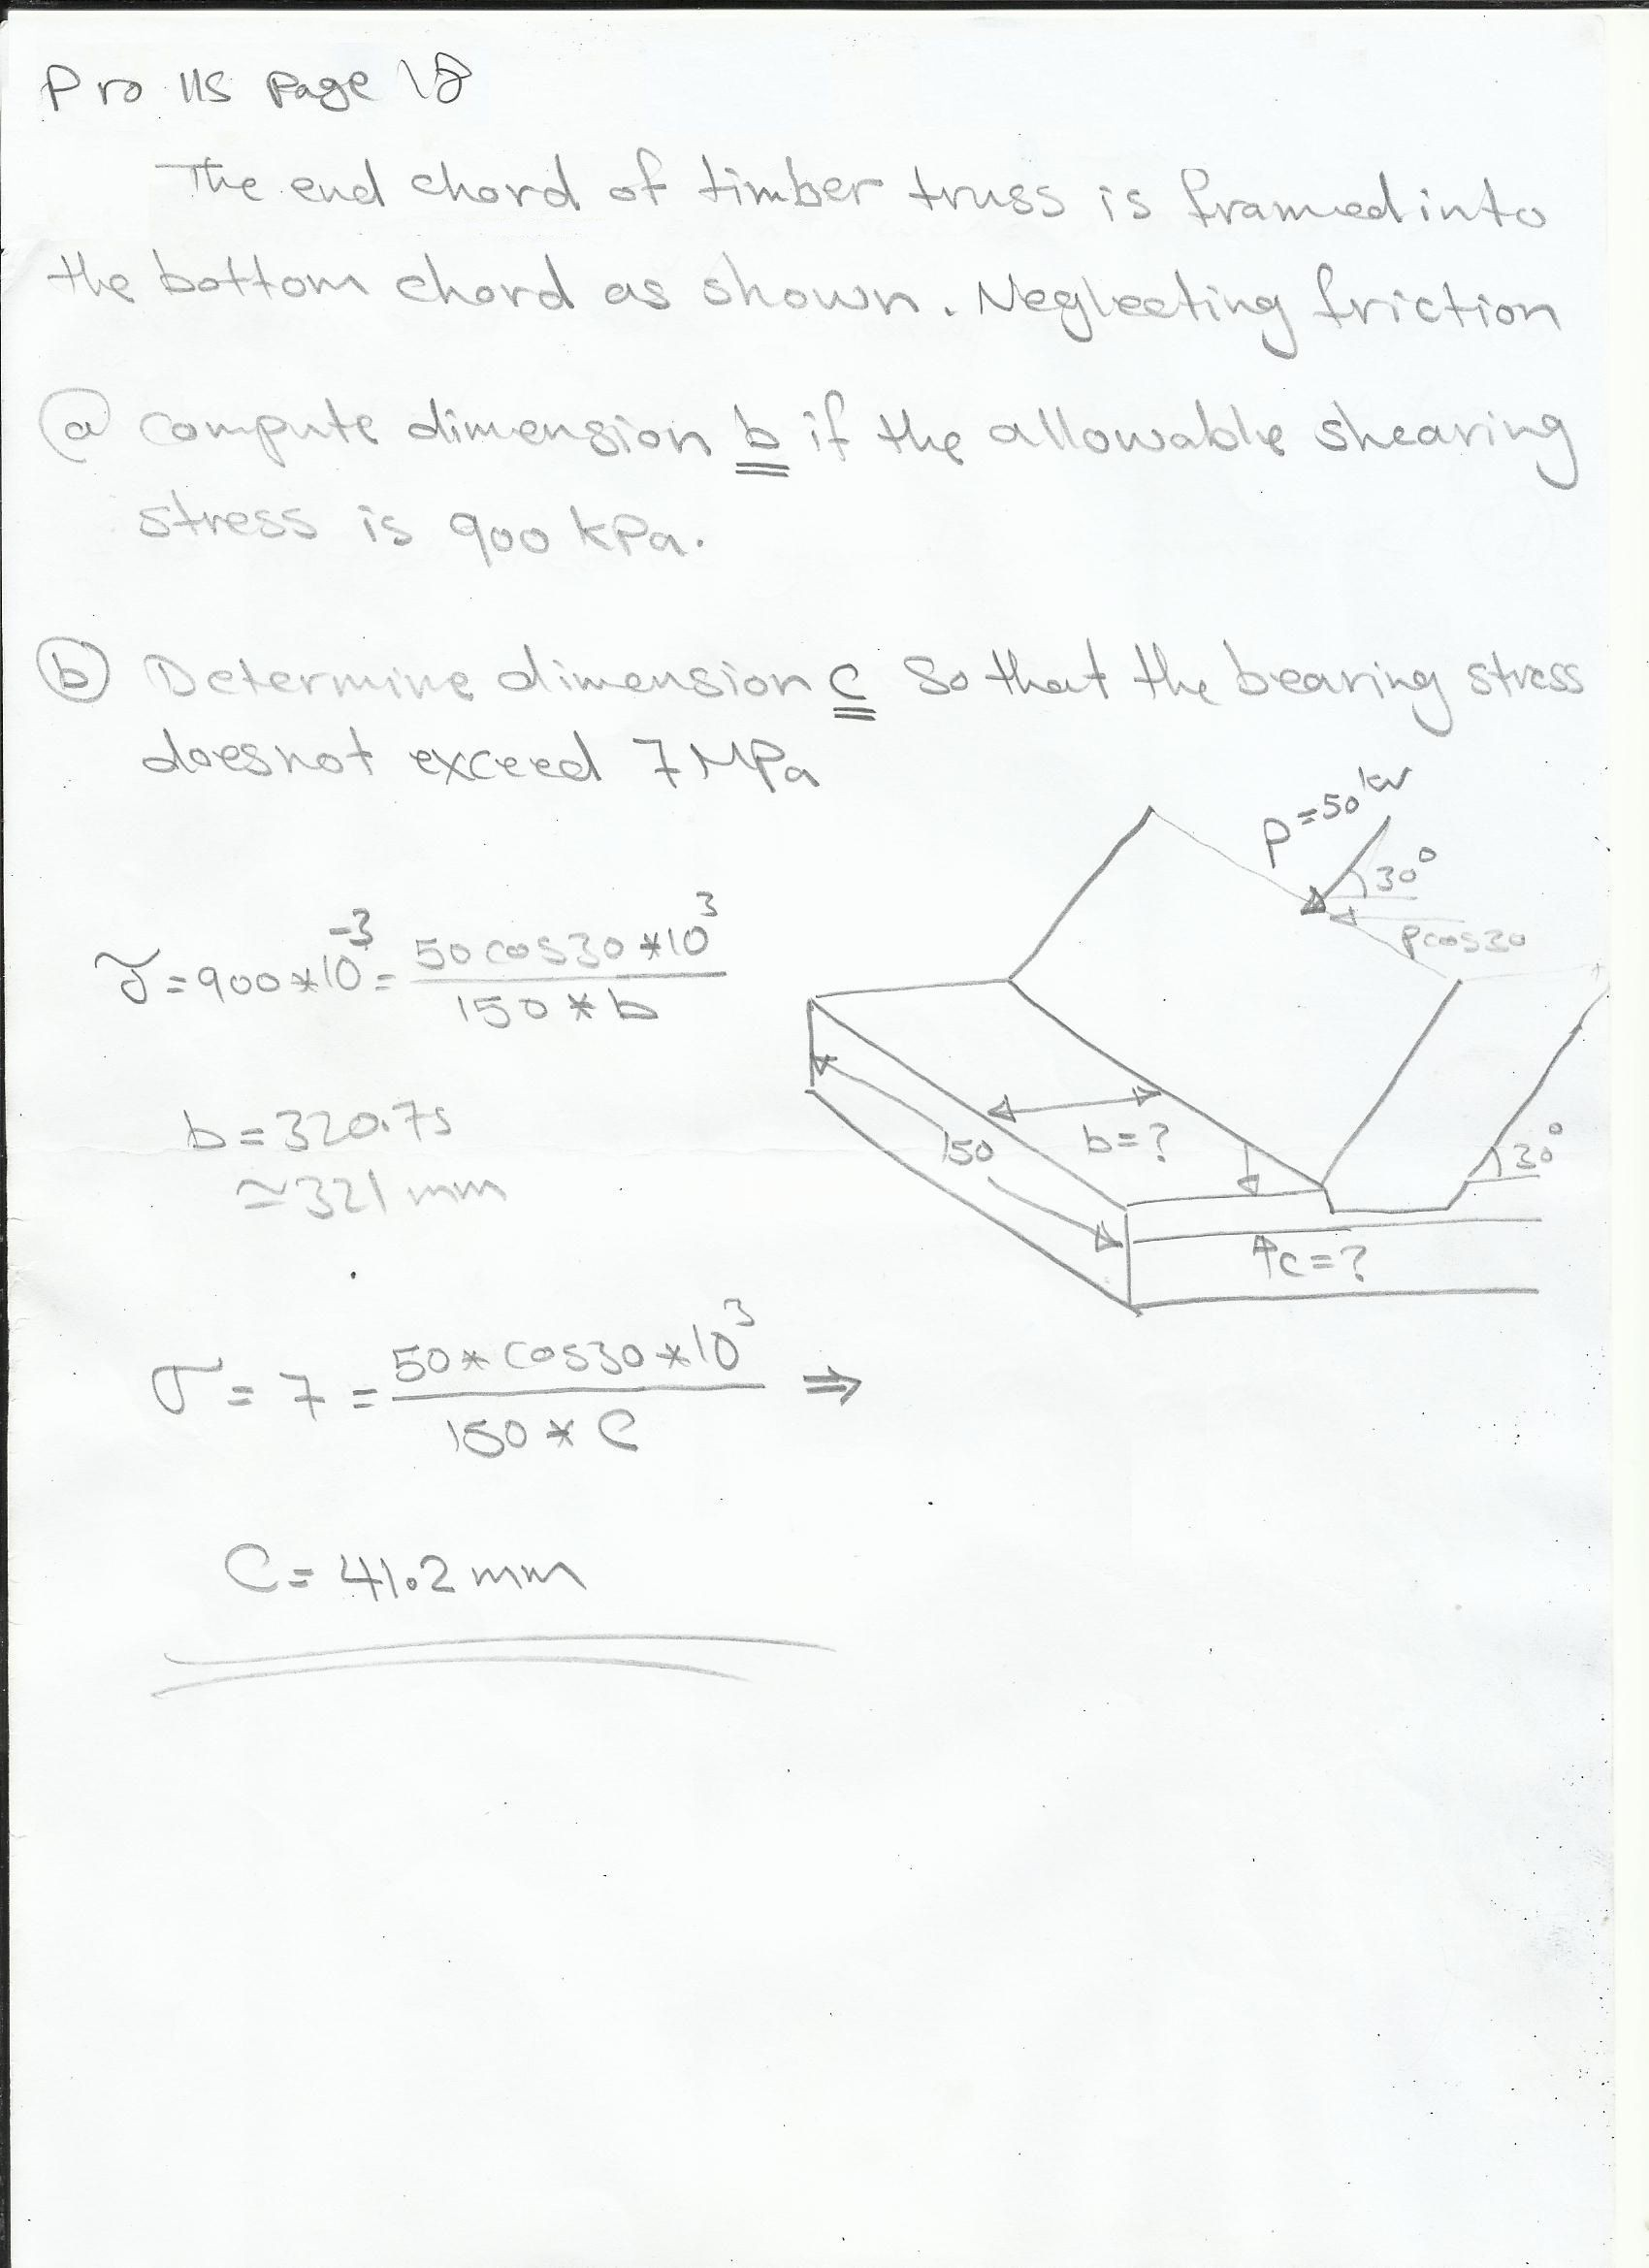 Pro 115 Page 18
The end chord of timber truss is framed into
the bottom chord as shown. Neglecting friction
(a) compute dimension b if the allowable shearing
stress is 900 kPa.
(b) Determine dimension c so that the bearing stress
does not exceed 7 MPa
P=50 kN
30°
Pcos30
τ=900*10^-3=50 cos30*10^3/150*b
b=320.75
≃321 mm
150
b=?
30°
c=?
σ=7=50*cos30*10^3/150*C ⇒
C=41.2mm